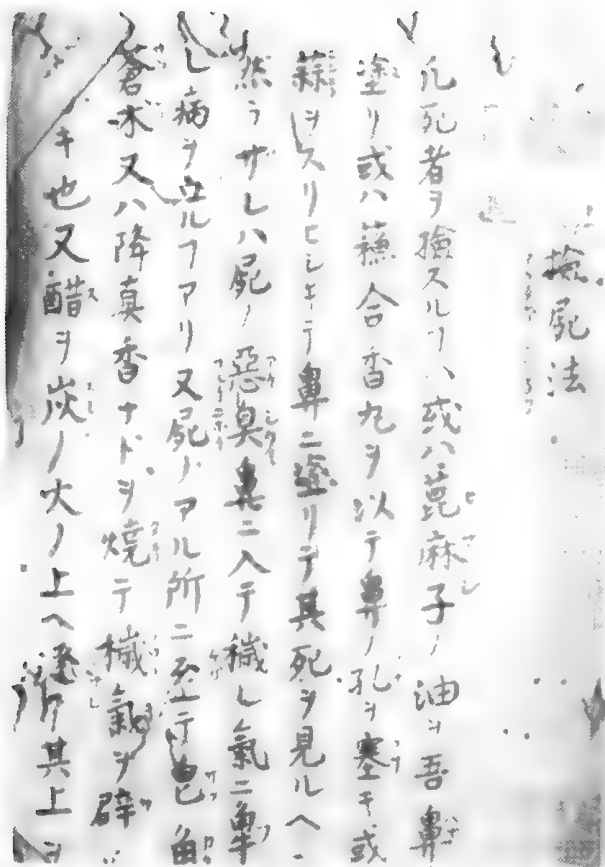 検屍法
凡死者ヲ検スルヿハ或ハ蓖麻子ノ油ヲ吾鼻
塗リ或ハ蘓合香丸ヲ以テ鼻ノ孔ヲ塞キ或
蒜ヲスリヒシキテ鼻ニ塗リテ其死ヲ見ルヘ
然ラザレハ屍ノ惡臭鼻ニ入テ穢レ氣ニ
レ病ヲ ルヿアリ又屍ノアル所ニ至テ皂角
蒼朮又ハ降真香ナドヲ燒テ穢氣ヲ辟
キ也又醋ヲ炭ノ火ノ上ヘ 其上ヲ